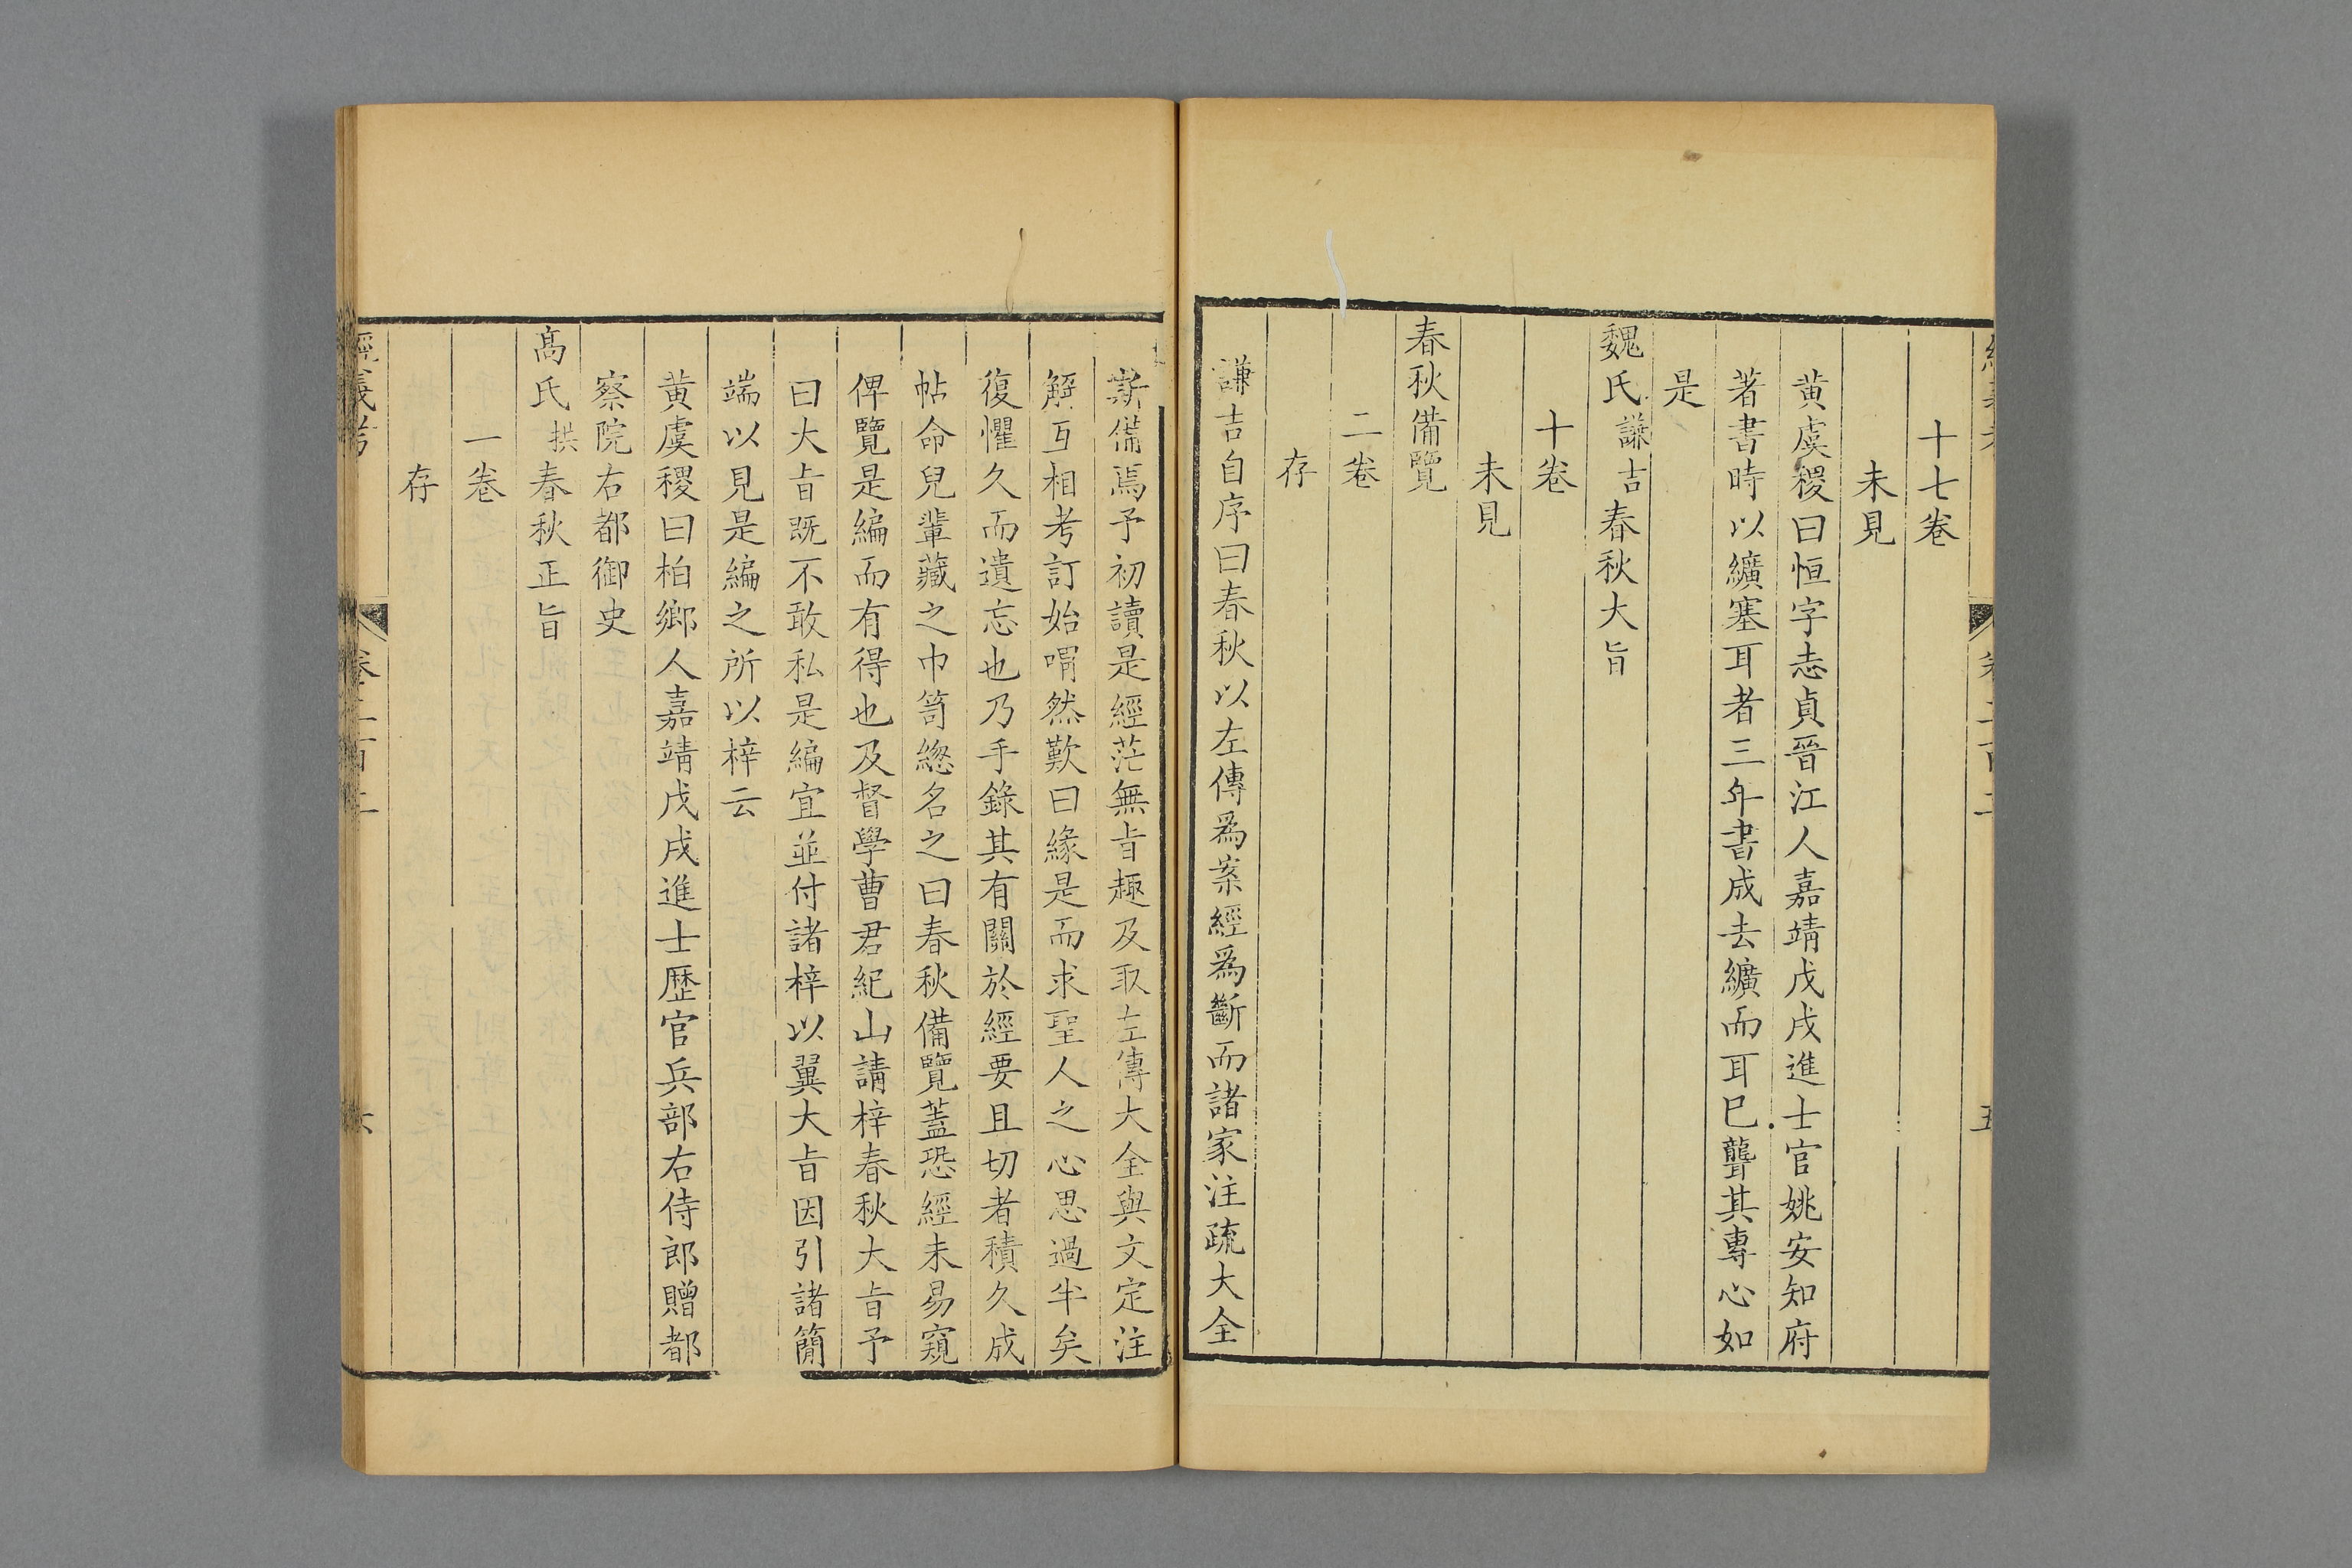 十七卷
未見
黄虞稷曰恒字志貞晉江人嘉靖戊戌進士官姚安知府
著書時以纊塞耳者三年書成去纊而耳巳聾其專心如
是
魏氏謙吉春秋大旨
十卷
未見
春秋備覽
二卷
存
謙吉自序曰春秋以左傳爲案經爲斷而諸家注疏大全
斯備焉予初讀是經茫無旨趣及取左傳大全與文定注
解互相考訂始喟然歎曰緣是而求聖人之心思過半矣
復懼久而遺忘也乃手錄其有關於經要且切者積久成
帖命兒輩藏之巾笥緫名之曰春秋備覽蓋恐經未易窺
俾覽是編而有得也及督學曹君紀山請梓春秋大旨予
曰大旨既不敢私是編宜並付諸梓以翼大旨因引諸簡
端以見是編之所以梓云
黄虞稷曰柏鄉人嘉靖戊戌進士歷官兵部右侍郎贈都
察院右都御史
高氏拱春秋正旨
一卷
存
經義考
卷二百二
六